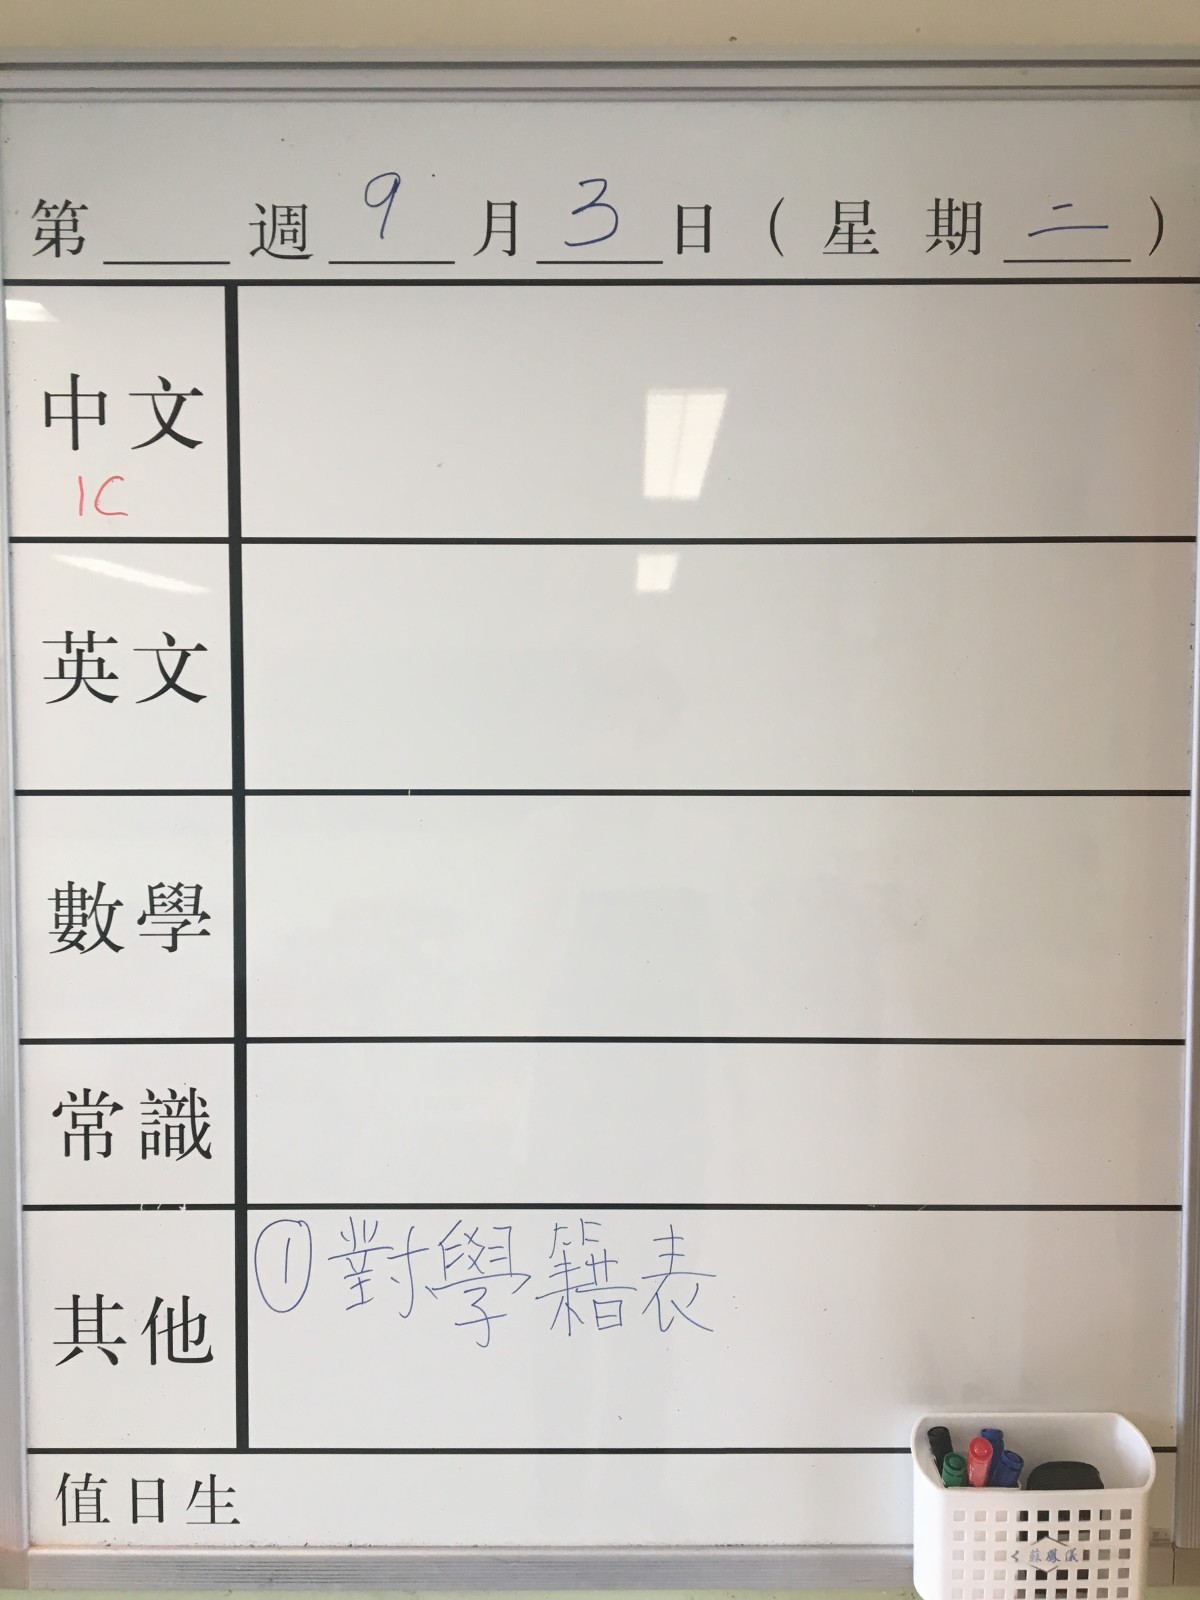 第____週 9 月 3 日(星期二)
中文
1C
英文
數學
常識
其他 ①對學籍表
值日生
蘇鳳儀